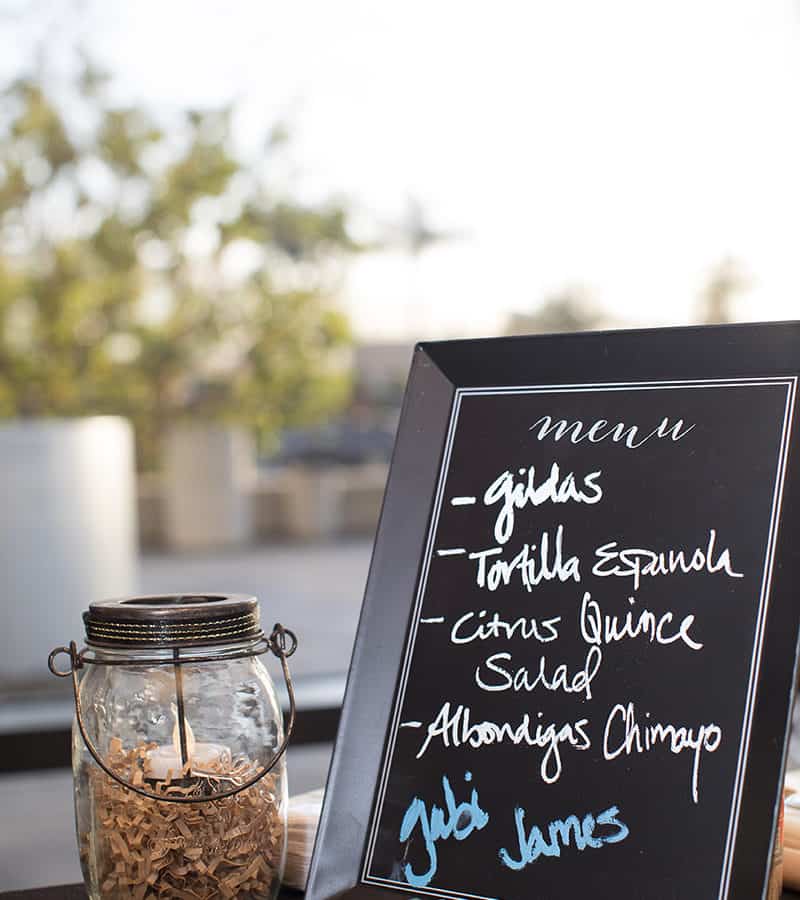 menu
- gildas
- Tortilla Espanola
- Citrus Quince
Salad
- Albondigas Chimayo
gabi James